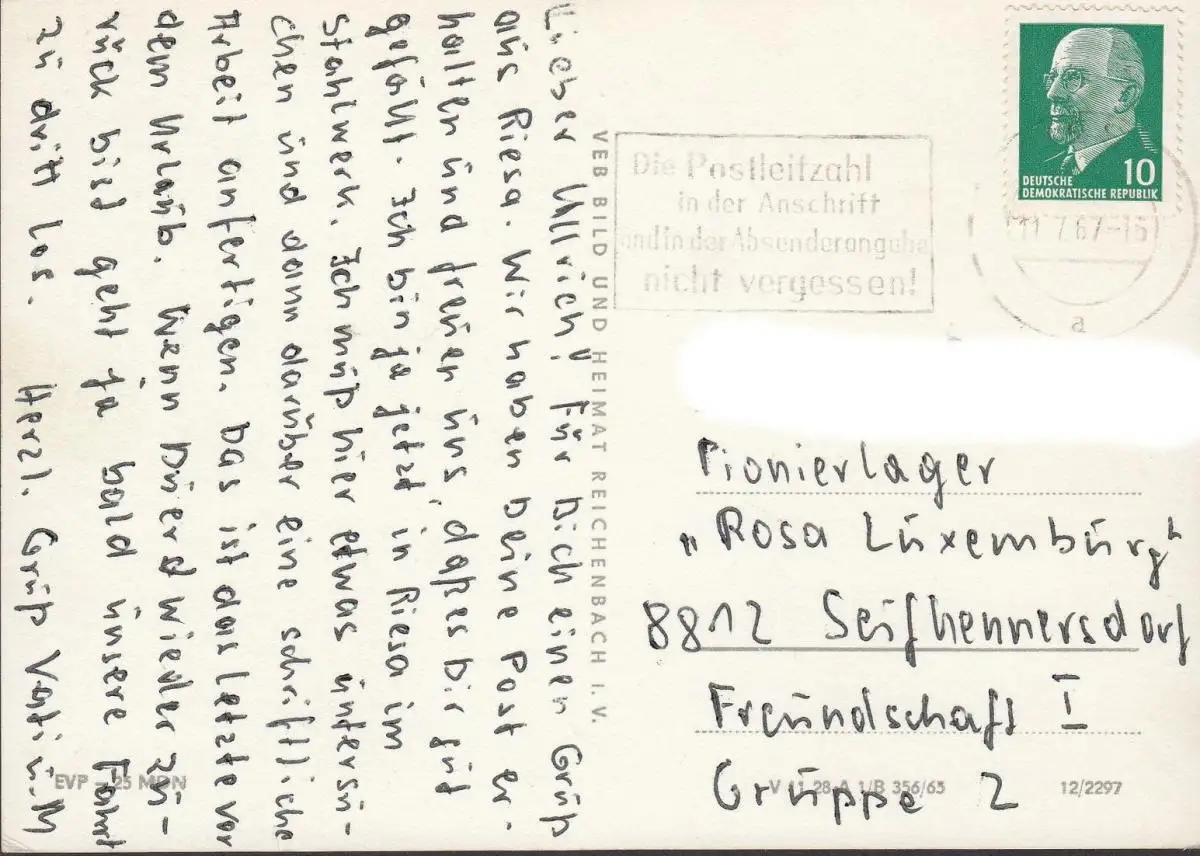 Lieber Ullrich! Für Dich einen Gruß
aus Riesa. Wir haben Deine Post er-
halten und freuen uns, daß es Dir gut
gefällt. Ich bin ja jetzt in Riesa im
Stahlwerk. Ich muß hier etwas untersu-
chen und dann darüber eine schriftliche
Arbeit anfertigen. Das ist das letzte vor
dem Urlaub. Wenn Du erst wieder zu-
rück bist geht ja bald unsere Fahrt
zu dritt los.
Herzl. Gruß Vati u. M
VEB BILD UND HEIMAT REICHENBACH I. V.
EVP – 25 MDN
Die Postleitzahl
in der Anschrift
und in der Absenderangabe
nicht vergessen!
10
DEUTSCHE
DEMOKRATISCHE REPUBLIK
11.7.67-16
a
Pionierlager
"Rosa Luxemburg"
8812 Seifhennersdorf
Freundschaft I
Gruppe 2
V 11 28 A 1/B 356/65
12/2297